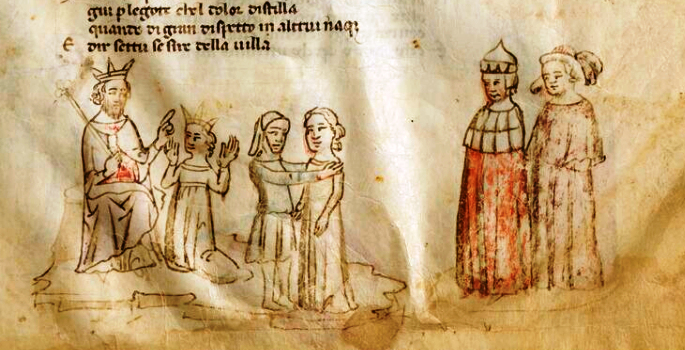 giu p legote chel dolor distilla
quando di gran dispetto in altrui naq;
E dir settu se sire della uilla